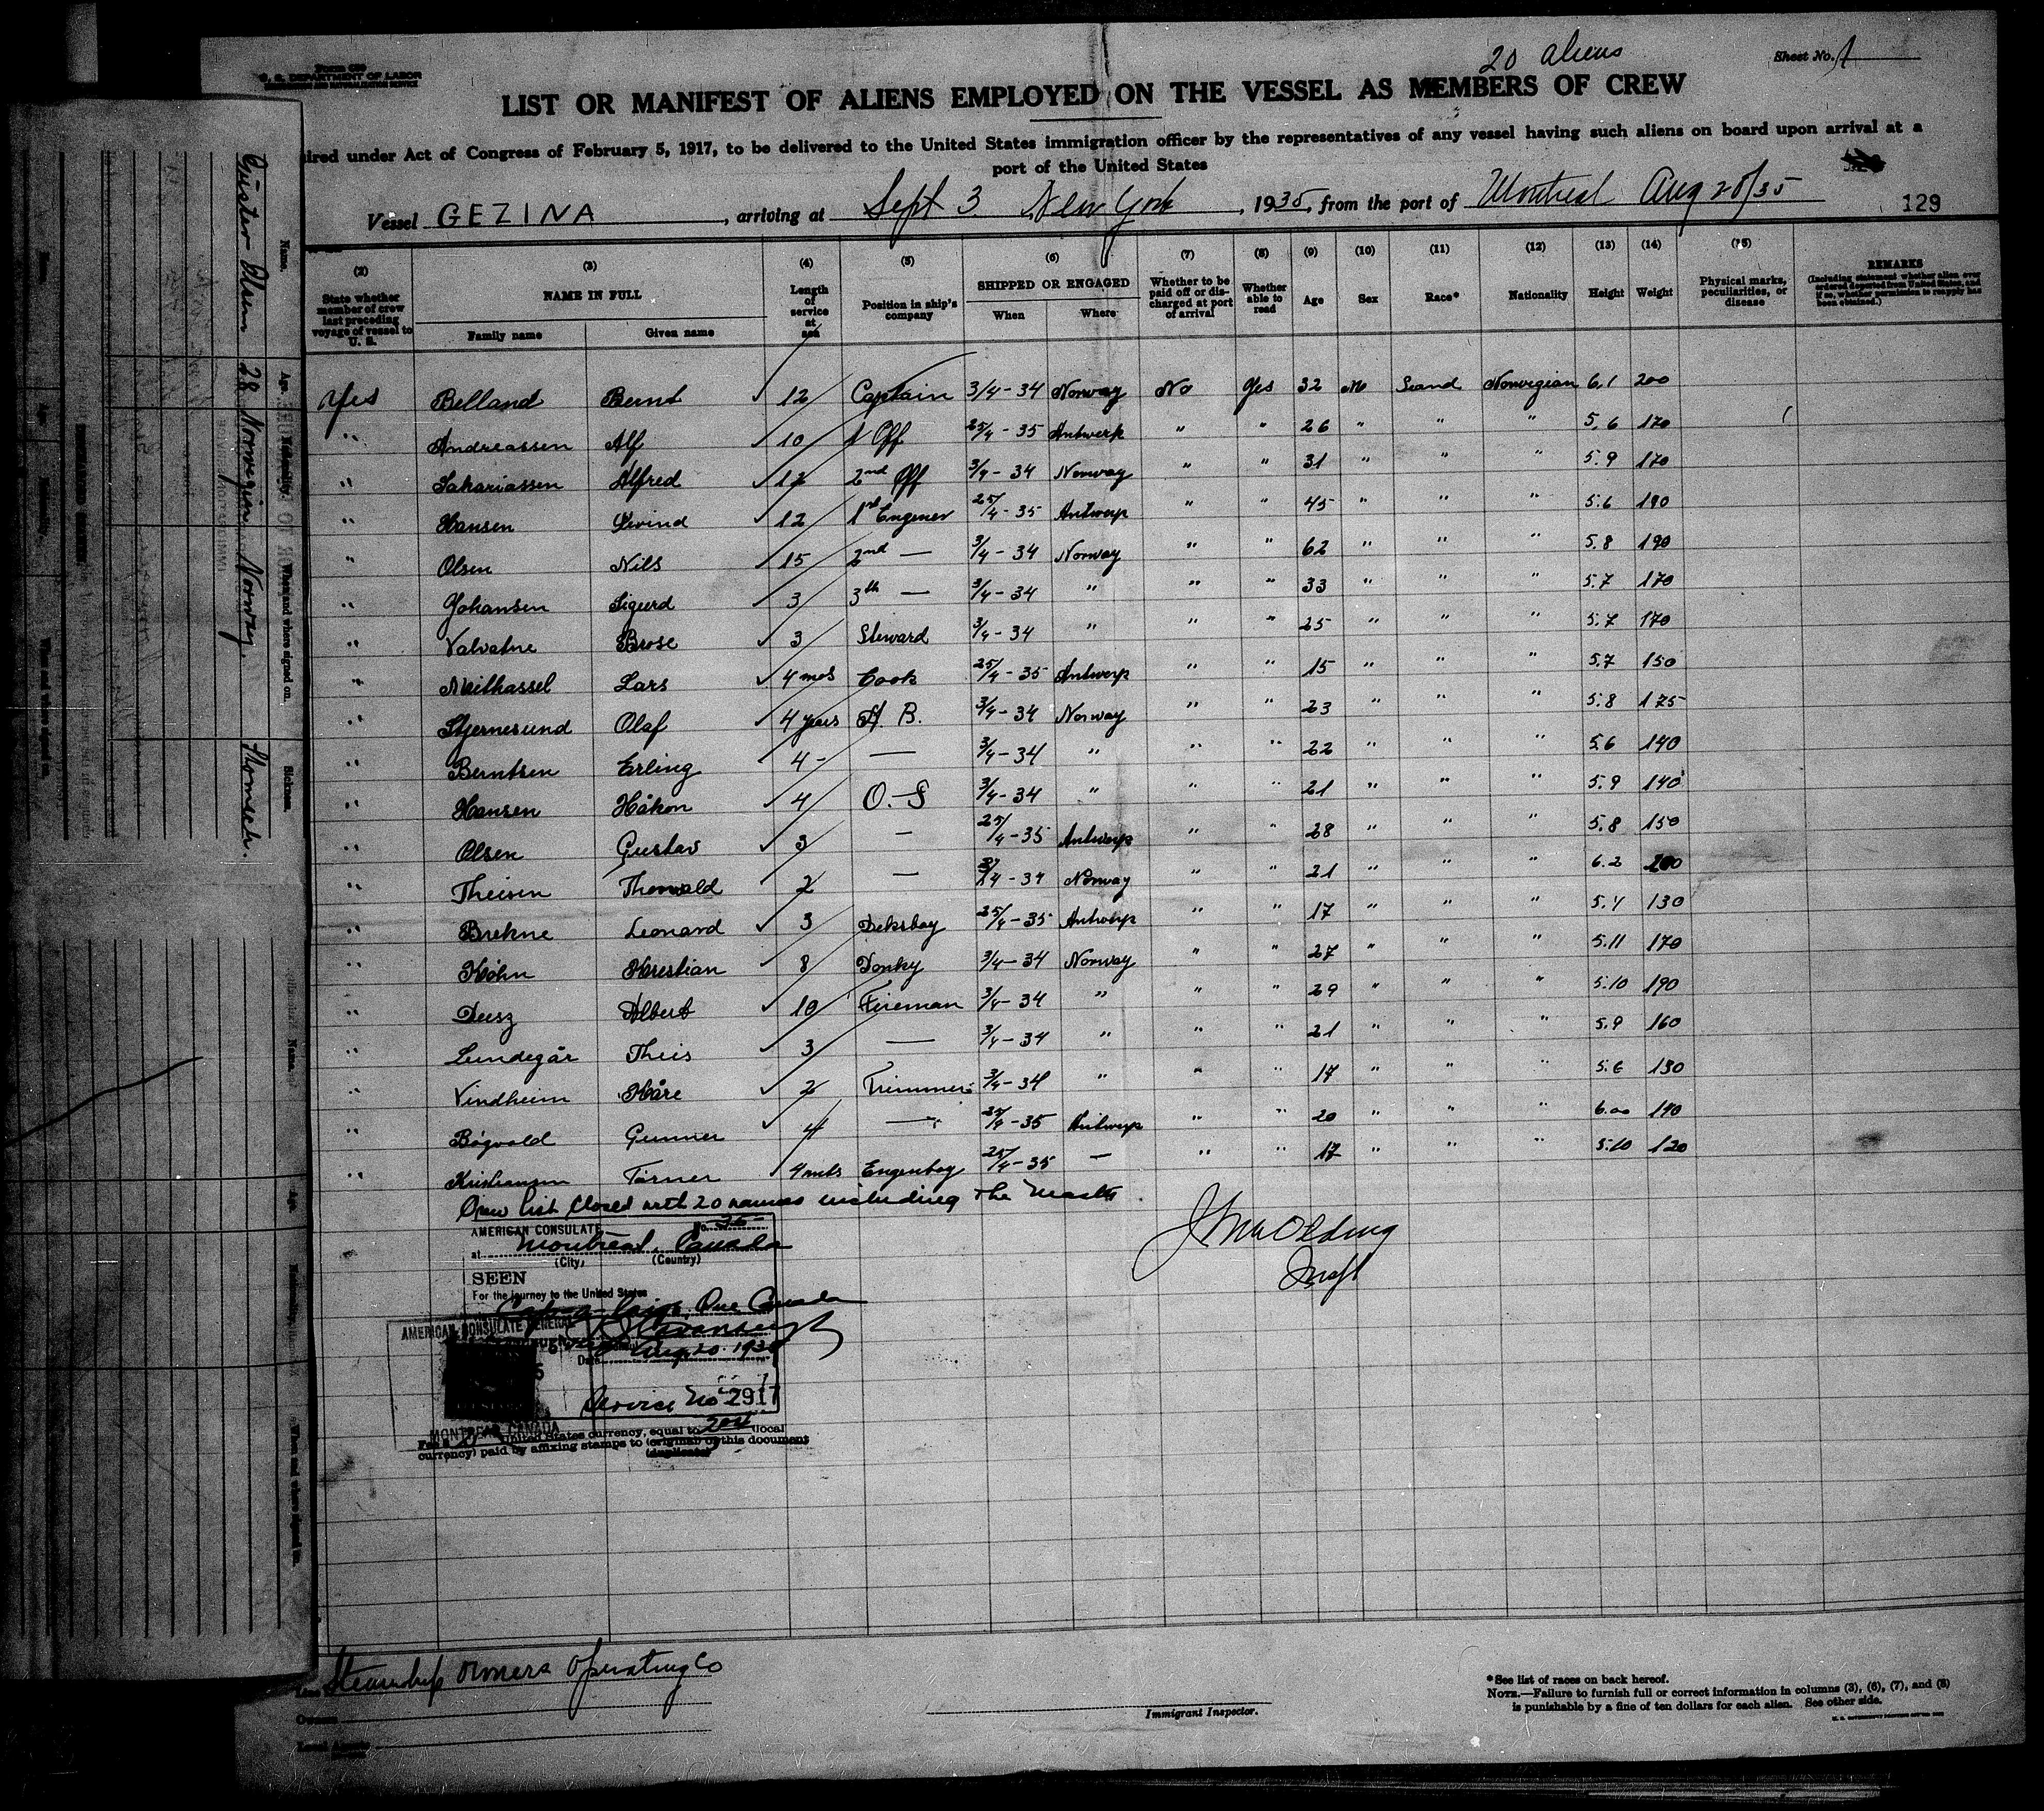 20 aliens
Sheet No. 1
U. S. DEPARTMENT OF LABOR
LIST OR MANIFEST OF ALIENS EMPLOYED ON THE VESSEL AS MEMBERS OF CREW
ired under Act of Congress of February 5, 1917, to be delivered to the United States immigration officer by the representatives of any vessel having such aliens on board upon arrival at a
port of the United States
Vessel GEZINA, arriving at Sept 3 New York, 1935, from the port of Montreal Aug 20/35
129
(2) (3) (4) (5) (6) (7) (8) (9) (10) (11) (12) (13) (14) (15)
State whether member of crew last preceding voyage of vessel to U. S. NAME IN FULL Family name Given name Length of service at sea Position in ship's company SHIPPED OR ENGAGED When Where Whether to be paid off or discharged at port of arrival Whether able to read Age Sex Race* Nationality Height Weight Physical marks, peculiarities, or disease REMARKS (Including statement whether alien ever ordered deported from United States, and if so, whether permission to reapply has been obtained.)
Yes Belland Bernt 12 Captain 3/4-34 Norway No Yes 32 M Scand Norwegian 6.1 200
" Andreassen Alf 10 1 Off 25/4-35 Antwerp " " 26 " " " 5.6 170
" Sakariassen Alfred 12 2nd Off 3/4-34 Norway " " 31 " " " 5.9 170
" Hansen Eivind 12 1st Engener 25/4-35 Antwerp " " 45 " " " 5.6 190
" Olsen Nils 15 2nd — 3/4-34 Norway " " 62 " " " 5.8 190
" Johansen Sigurd 3 3th — 3/4-34 " " " 33 " " " 5.7 170
" Valvatne Brose 3 Steward 3/4-34 " " " 25 " " " 5.7 170
" Meilhassel Lars 4 mos Cook 25/4-35 Antwerp " " 15 " " " 5.7 150
" Stjernesund Olaf 4 years A. B. 3/4-34 Norway " " 23 " " " 5.8 175
" Berntsen Erling 4 - — 3/4-34 " " " 22 " " " 5.6 140
" Hansen Håkon 4 O.-S 3/4-34 " " " 21 " " " 5.9 140
" Olsen Gustav 3 — 25/4-35 Antwerp " " 28 " " " 5.8 150
" Theisen Thorvald 2 — 3/4-34 Norway " " 21 " " " 6.2 200
" Brekne Leonard 3 Deksboy 25/4-35 Antwerp " " 17 " " " 5.4 130
" Køhn Krestian 8 Donky 3/4-34 Norway " " 27 " " " 5.11 170
" Deisz Albert 10 Fireman 3/4-34 " " " 29 " " " 5.10 190
" Lundegår Theis 3 — 3/4-34 " " " 21 " " " 5.9 160
" Vindheim Kåre 2 Trimmer 3/4-34 " " " 17 " " " 5.6 130
" Bøgvald Gunner 4 — 25/4-35 Antwerp " " 20 " " " 6.00 190
" Kristiansen Tørner 4 mts Engenboy 25/4-35 — " " 17 " " " 5.10 120
Crew list closed with 20 names including the master.
AMERICAN CONSULATE No. 35
at Montreal, Canada
(City) (Country)
SEEN
For the journey to the United States
Que Canada
AMERICAN CONSULATE GENERAL
Date Aug 20 1935
Service No 2917
MONTREAL CANADA
United States currency, equal to (local
currency) paid by affixing stamps to (original) of this document
(duplicate)
Insp
Steamship owners operating Co
Owners
Local Agents
Immigrant Inspector.
*See list of races on back hereof.
NOTE.—Failure to furnish full or correct information in columns (3), (6), (7), and (8)
is punishable by a fine of ten dollars for each alien. See other side.
Name. Age. Nationality. When and where signed on. Sickness.
28 Norwegian Norway.
Name. Age. When and where signed on.